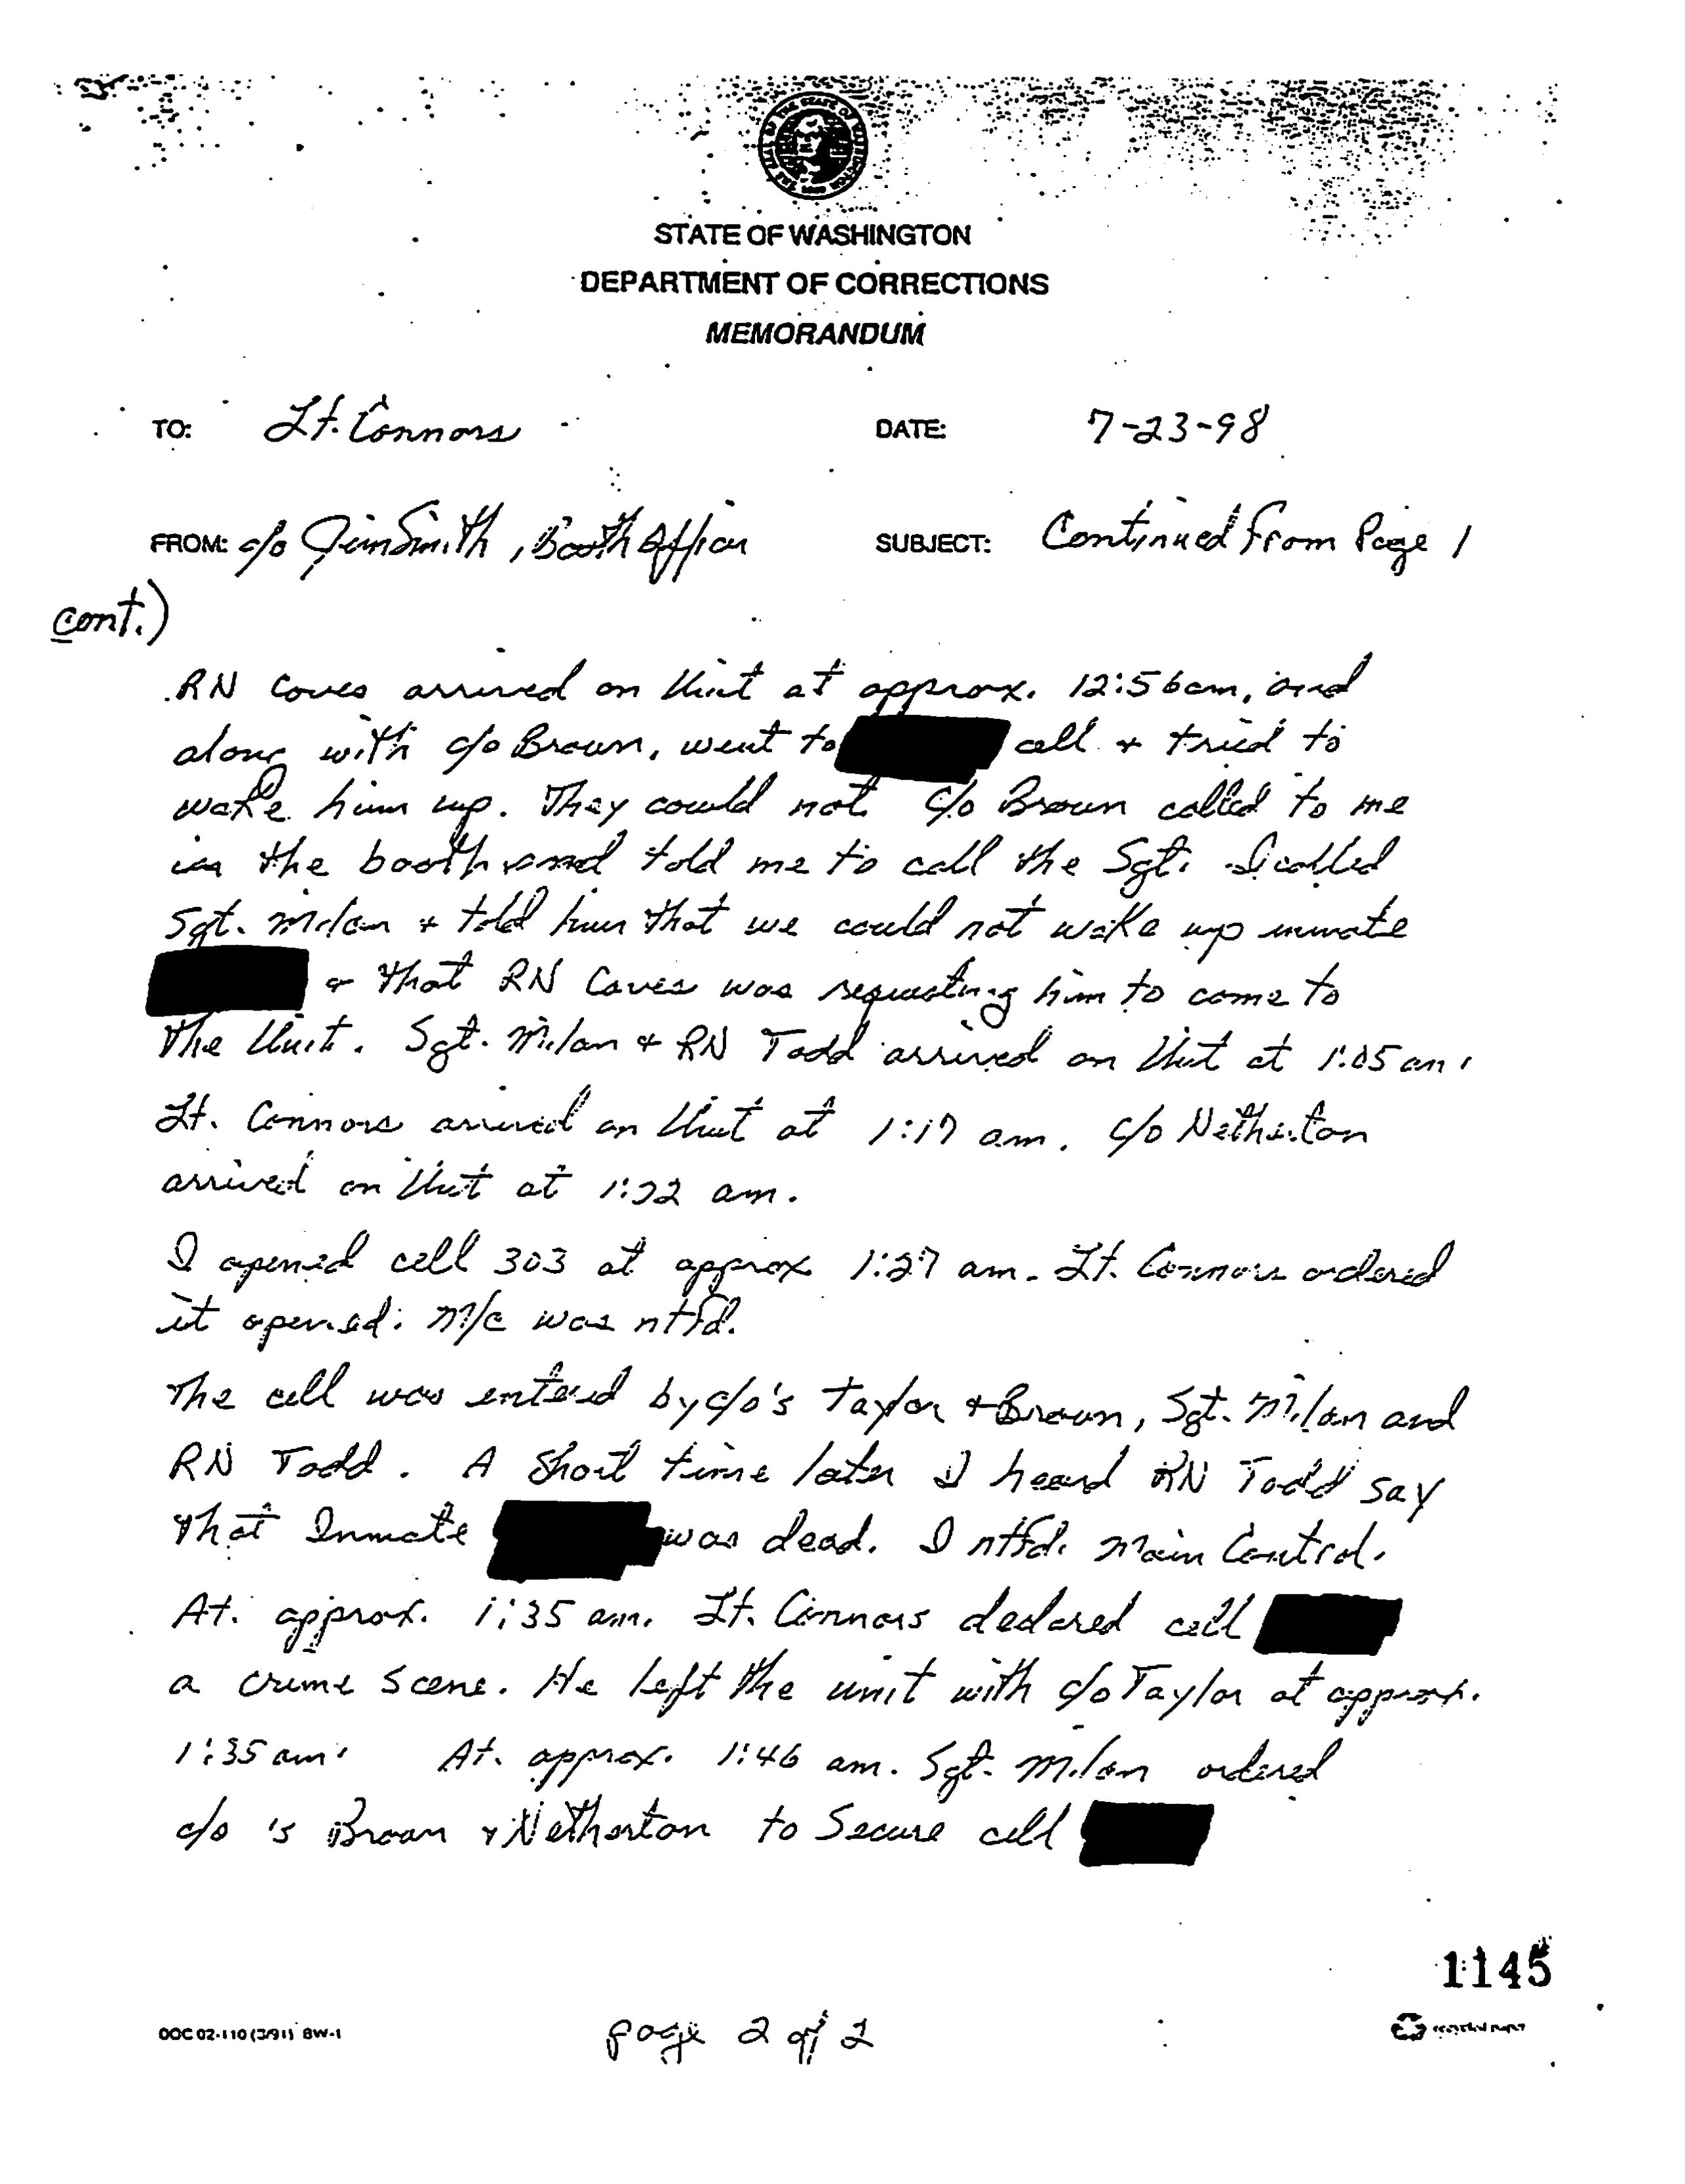 STATE OF WASHINGTON
DEPARTMENT OF CORRECTIONS
MEMORANDUM
TO: Lt. Connors DATE: 7-23-98
FROM: c/o Jim Smith, Booth Officer SUBJECT: Continued From Page 1
cont.)
RN Caves arrived on Unit at approx. 12:56am, and
along with c/o Brown, went to cell + tried to
wake him up. They could not. C/o Brown called to me
in the booth and told me to call the Sgt. I called
Sgt. Milan + told him that we could not wake up inmate
+ that RN Caves was requesting him to come to
the Unit. Sgt. Milan + RN Todd arrived on Unit at 1:05 am.
Lt. Connors arrived on Unit at 1:17 am. C/o Netherton
arrived on Unit at 1:22 am.
I opened cell 303 at approx 1:27 am. Lt. Connors ordered
it opened. M/C was ntfd.
The cell was entered by c/o's Taylor + Brown, Sgt. Milan and
RN Todd. A short time later I heard RN Todd say
that Inmate was dead. I ntfd. Main Control.
At. approx. 1:35 am. Lt. Connors declared cell
a crime scene. He left the unit with c/o Taylor at approx.
1:35 am. At. approx. 1:46 am. Sgt. Milan ordered
c/o 's Brown + Netherton to Secure cell
1145
DOC 02-110 (3/91) BW-1 page 2 of 2 recycled paper